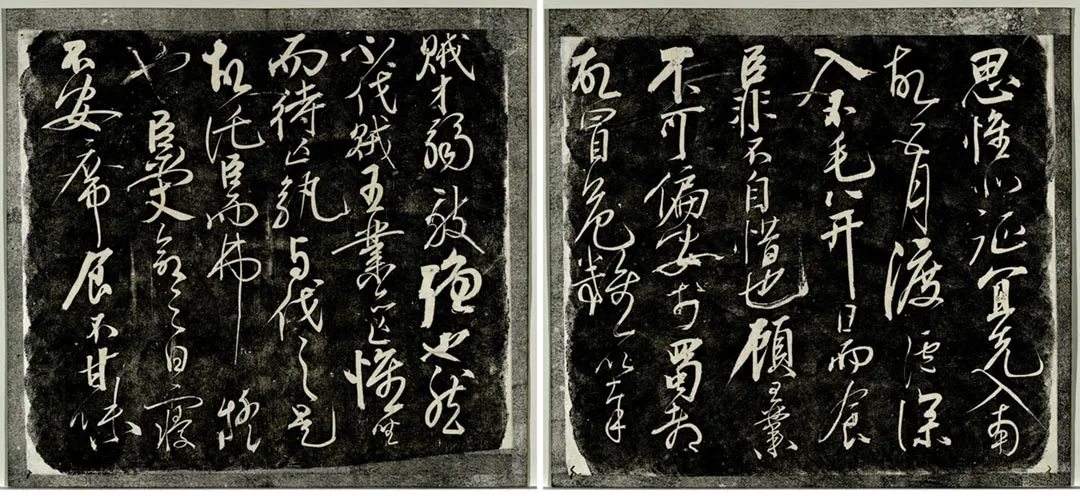 賊才弱敵強也然
不伐賊王業亦亡惟坐
而待亡孰與伐之是
故託臣而弗疑
也臣受命之日寢
不安席食不甘味
思惟北征宜先入南
故五月渡瀘深
入不毛并日而食
臣非不自惜也顧王業
不可偏安於蜀都
故冒危難以奉